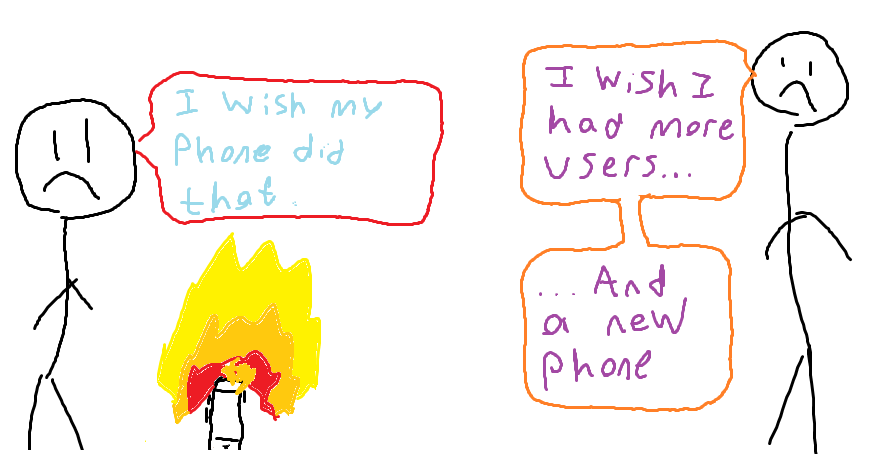 I wish my
Phone did
that.
I wish I
had more
users...
... And
a new
phone